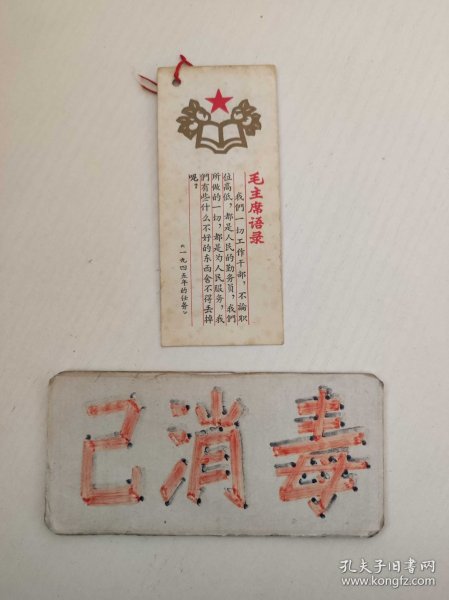 毛主席语录
我們一切工作干部，不論职
位高低，都是人民的勤务員，我們
所做的一切，都是为人民服务，我
們有些什么不好的东西舍不得丢掉
呢？
《一九四五年的任务》
己消毒
孔夫子旧书网
www.kongfz.com